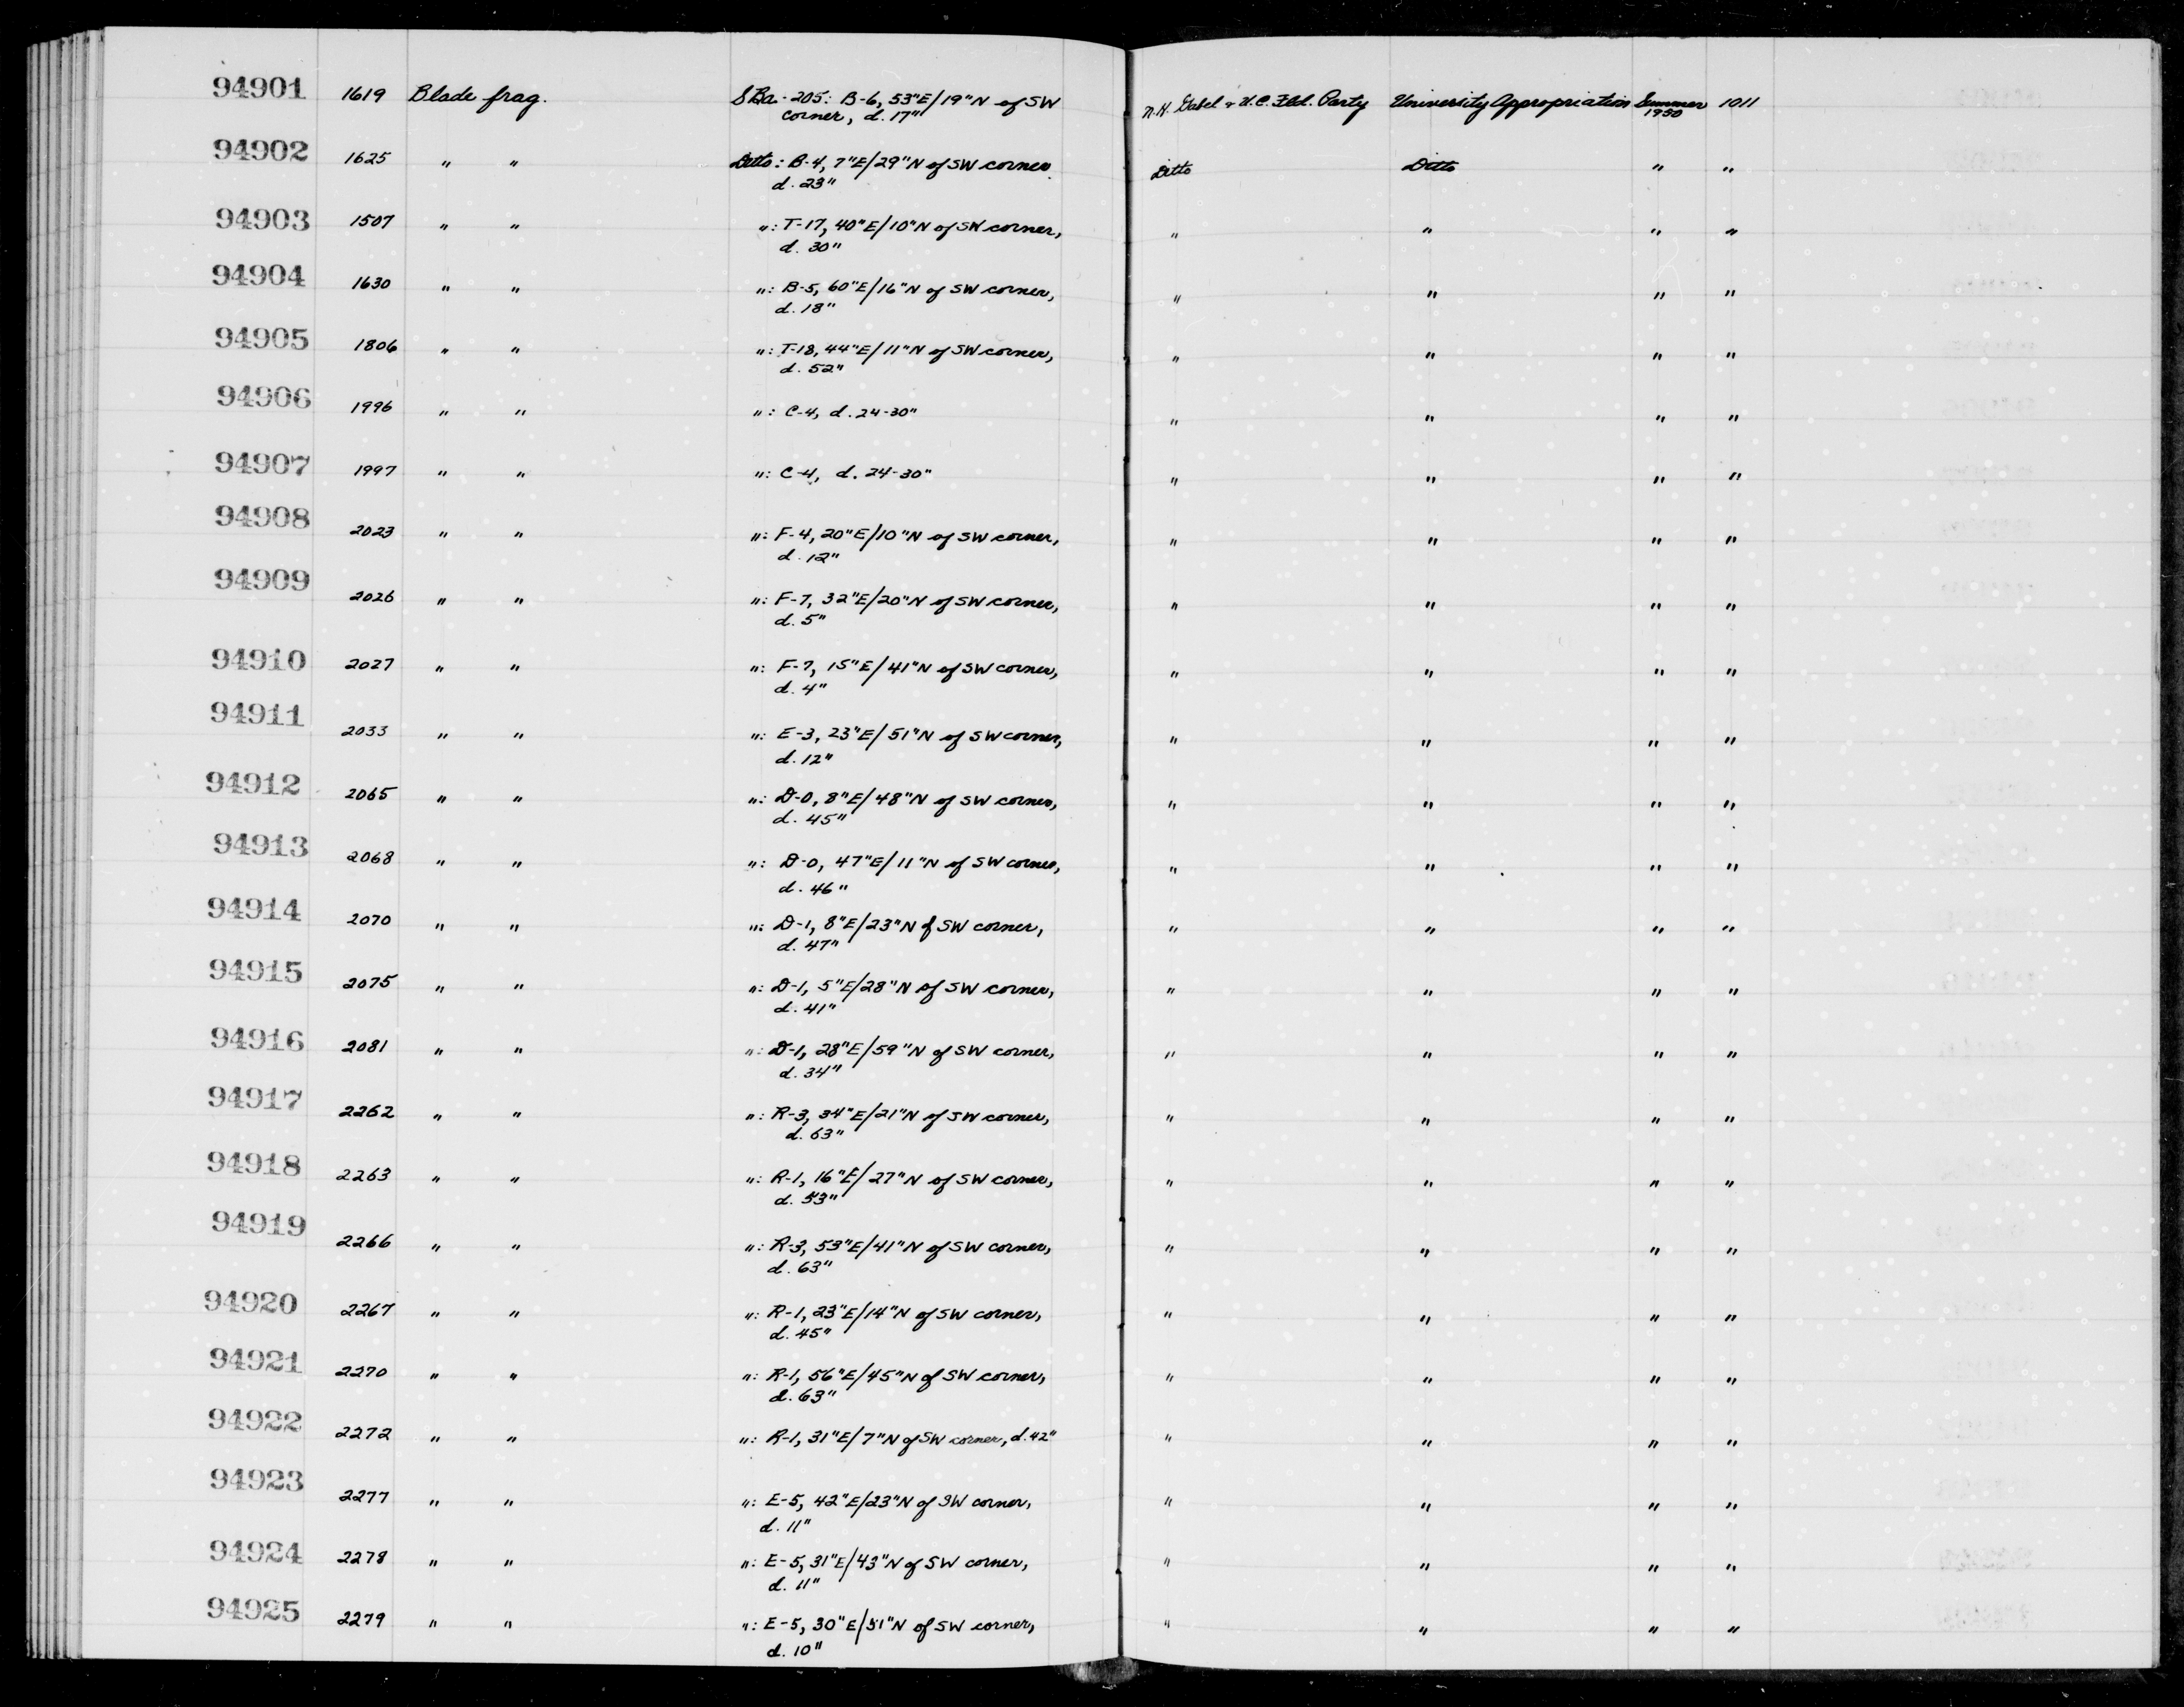 94901 1619 Blade frag. SBa-205: B-6, 53"E/19"N of SW N.H. Gabel & U.C. Fld. Party University Appropriation Summer 1011
corner, d. 17" 1950
94902 1625 " " Ditto: B-4, 7"E/29"N of SW corner Ditto Ditto " "
d. 23"
94903 1507 " " ": T-17, 40"E/10"N of SW corner, " " " "
d. 30"
94904 1630 " " ": B-5, 60"E/16"N of SW corner, " " " "
d. 18"
94905 1806 " " ": T-18, 44"E/11"N of SW corner, " " " "
d. 52"
94906 1996 " " ": C-4, d. 24-30" " " " "
94907 1997 " " ": C-4, d. 24-30" " " " "
94908 2023 " " ": F-4, 20"E/10"N of SW corner, " " " "
d. 12"
94909 2026 " " ": F-7, 32"E/20"N of SW corner, " " " "
d. 5"
94910 2027 " " ": F-7, 15"E/41"N of SW corner, " " " "
d. 4"
94911 2033 " " ": E-3, 23"E/51"N of SW corner, " " " "
d. 12"
94912 2065 " " ": D-0, 8"E/48"N of SW corner, " " " "
d. 45"
94913 2068 " " ": D-0, 47"E/11"N of SW corner, " " " "
d. 46"
94914 2070 " " ": D-1, 8"E/23"N of SW corner, " " " "
d. 47"
94915 2075 " " ": D-1, 5"E/28"N of SW corner, " " " "
d. 41"
94916 2081 " " ": D-1, 28"E/59"N of SW corner, " " " "
d. 34"
94917 2262 " " ": R-3, 34"E/21"N of SW corner, " " " "
d. 63"
94918 2263 " " ": R-1, 16"E/27"N of SW corner, " " " "
d. 53"
94919 2266 " " ": R-3, 53"E/41"N of SW corner, " " " "
d. 63"
94920 2267 " " ": R-1, 23"E/14"N of SW corner, " " " "
d. 45"
94921 2270 " " ": R-1, 56"E/45"N of SW corner, " " " "
d. 63"
94922 2272 " " ": R-1, 31"E/7"N of SW corner, d. 42" " " " "
94923 2277 " " ": E-5, 42"E/23"N of SW corner, " " " "
d. 11"
94924 2278 " " ": E-5, 31"E/43"N of SW corner, " " " "
d. 11"
94925 2279 " " ": E-5, 30"E/51"N of SW corner, " " " "
d. 10"